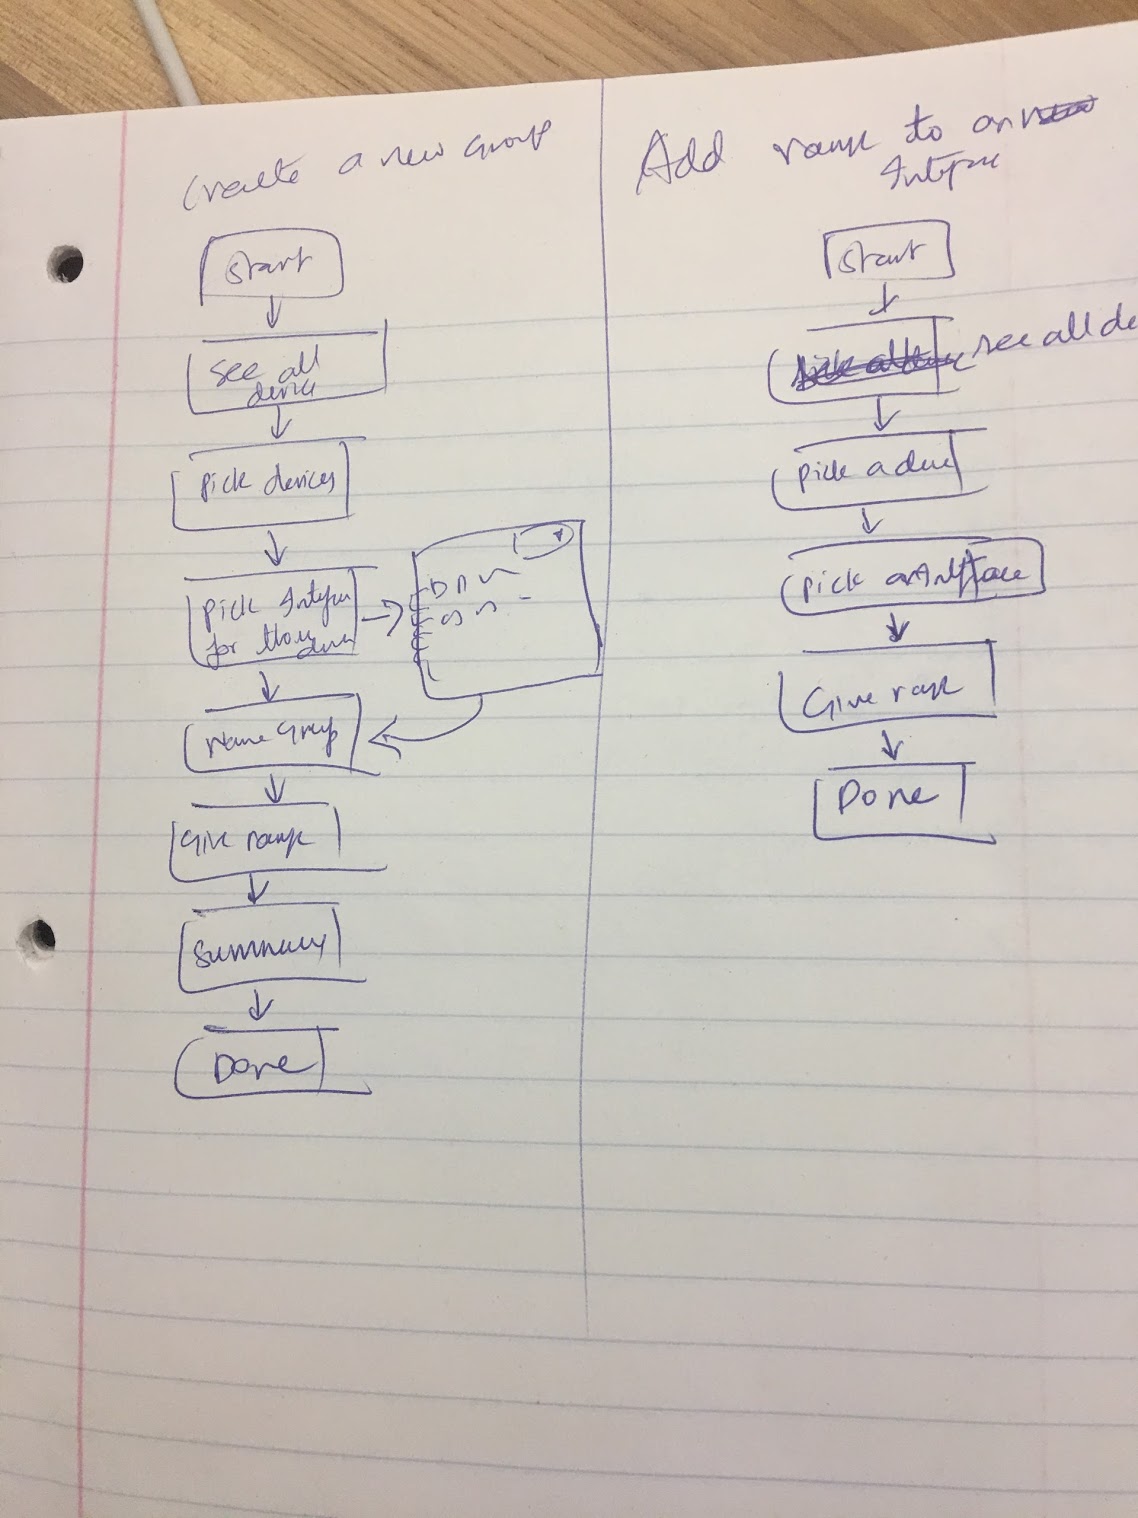 Create a new Group
Start
See all
device
Pick devices
Pick Interface
for those
Name Group
Give range
Summary
Done
Add range to an
Interface
Start
see all de
Pick a device
Pick an Interface
Give range
Done